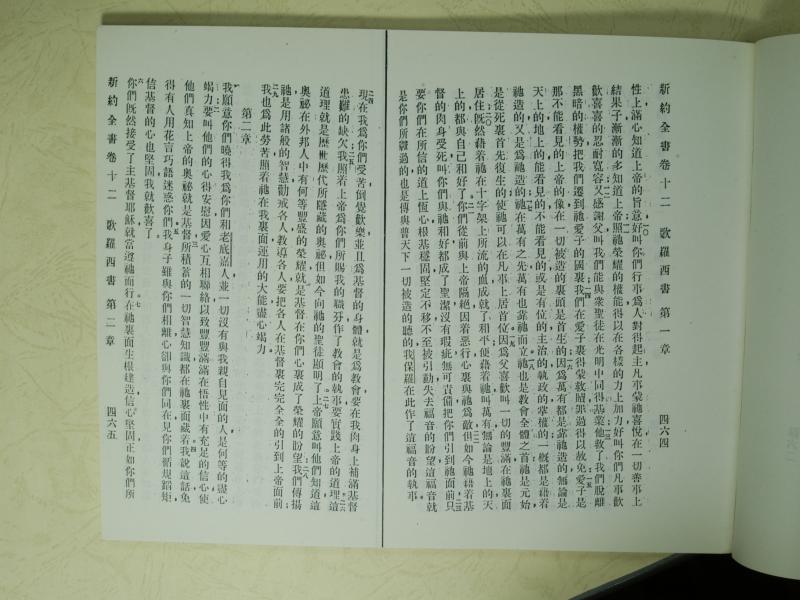 新約全書卷十二　歌羅西書　第一章　四六四
性上滿心知道上帝的旨意好叫你們行事爲人對得起主凡事蒙祂喜悅在一切善事上
結果子漸漸的多知道上帝照祂榮耀的權能得以在各樣的力上加力好叫你們凡事歡
歡喜喜的忍耐寬容又感謝父叫我們能與衆聖徒在光明中同得基業他救了我們脫離
黑暗的權勢把我們遷到祂愛子的國裏我們在愛子裏得蒙救贖罪過得以赦免愛子是
那不能看見的上帝的像在一切被造的裏頭是首生的因爲萬有都是靠祂造的無論是
天上的地上的能看見的不能看見的或是有位的主治的執政的掌權的一概都是藉着
祂造的又是爲祂造的祂在萬有之先萬有也靠祂而立祂也是教會全體之首祂是元始
是從死裏首先復生的使祂可以在凡事上居首位因爲父喜歡叫一切的豐滿在祂裏面
居住旣然藉着祂在十字架上所流的血成就了和平便藉着祂叫萬有無論是地上的天
上的都與自己和好了你們從前與上帝隔絕因着惡行心裏與祂爲敵但如今祂藉着基
督的肉身受死叫你們與祂和好都成了聖潔沒有瑕疵無可責備把你們引到祂面前只
要你們在所信的道上恆心根基穩固堅定不移不至被引動失去福音的盼望這福音就
是你們所聽過的也是傳與普天下一切被造的聽的我保羅在此作了這福音的執事
現在我爲你們受苦倒覺歡樂並且爲基督的身體就是爲教會要在我肉身上補滿基督
患難的缺欠我照着上帝爲你們所賜我的職分作了教會的執事要實踐上帝的道理這
道理就是歷世歷代所隱藏的奧祕但如今向祂的聖徒顯明了上帝願意叫他們知道這
奧祕在外邦人中有何等豐盛的榮耀就是基督在你們心裏成了榮耀的盼望我們傳揚
祂是用諸般的智慧勸戒各人教導各人要把各人在基督裏完完全全的引到上帝面前
我也爲此勞苦照着祂在我裏面運用的大能盡心竭力
第二章
我願意你們曉得我爲你們和老底嘉人並一切沒有與我親自見面的人是何等的盡心
竭力要叫他們的心得安慰因愛心互相聯絡以致豐豐滿滿在悟性中有充足的信心使
他們眞知上帝的奧祕就是基督所積蓄的一切智慧知識都在祂裏面藏着我說這話免
得有人用花言巧語迷惑你們我身子雖與你們相離心卻與你們同在見你們循規蹈矩
信基督的心也堅固我就歡喜了
你們旣然接受了主基督耶穌就當遵祂而行在祂裏面生根建造信心堅固正如你們所
新約全書卷十二　歌羅西書　第二章　四六五